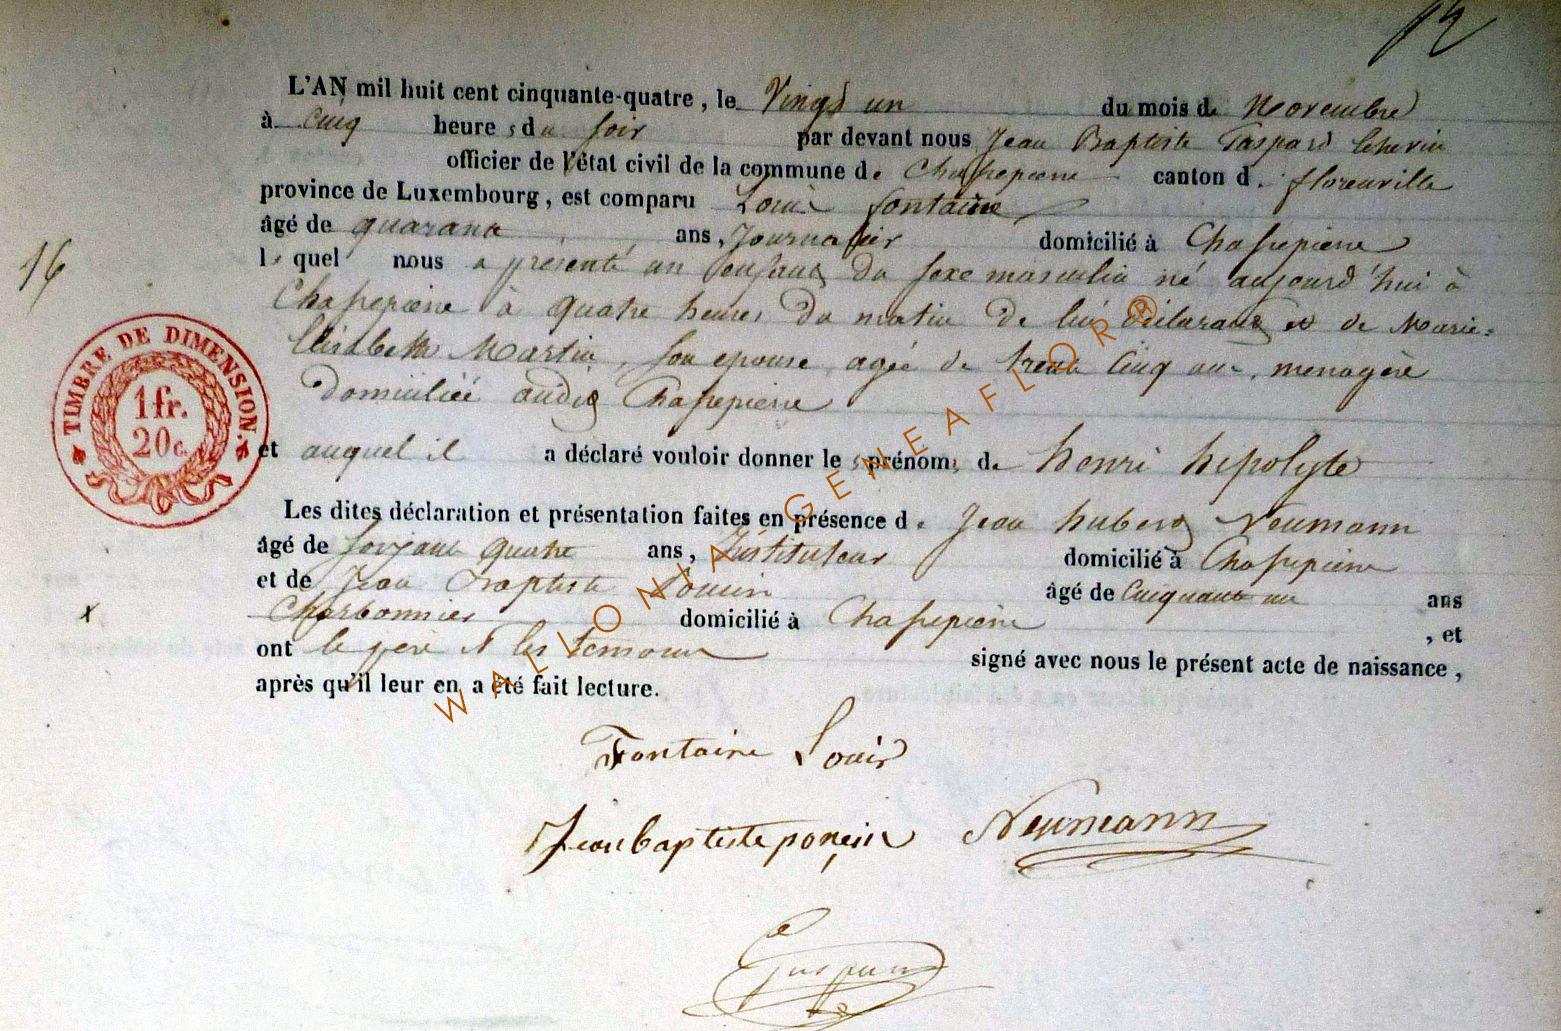 12
L'AN mil huit cent cinquante-quatre, le Vingt un du mois de Novembre
à Cinq heures du soir par devant nous Jean Baptiste Gaspard
officier de l'état civil de la commune de Chassepierre canton de florenville
province de Luxembourg, est comparu Louis fontaine
âgé de quarante ans, Journalier domicilié à Chassepierre
le quel nous a présenté un enfant du sexe masculin né aujourd'hui à
Chassepierre à quatre heures du matin de lui déclarant et de Marie=
Elisabeth Martin, son epouse, agée de trente Cinq ans, menagère
domiciliée audit Chassepierre
et auquel il a déclaré vouloir donner les prénoms de henri hipolyte
Les dites déclaration et présentation faites en présence de Jean hubert Neumann
âgé de soixante quatre ans, Instituteur domicilié à Chassepierre
et de Jean Baptiste âgé de Cinquante un ans
Charbonnier domicilié à Chassepierre, et
ont le père et les temoins signé avec nous le présent acte de naissance,
après qu'il leur en a été fait lecture.
16
TIMBRE DE DIMENSION.
1 fr.
20 c.
x
Fontaine Louis
Jean baptiste ponçin Neumann
Gaspard
WALLONIA-GENEAFLOR®